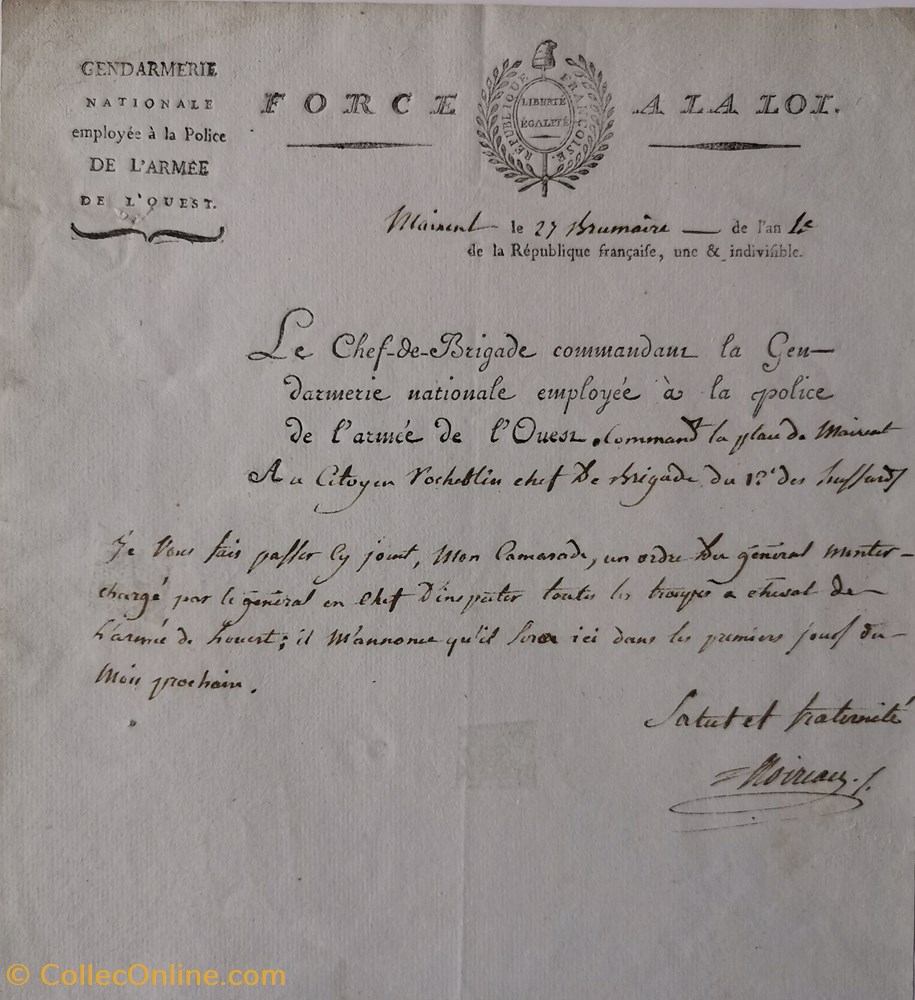 GENDARMERIE
NATIONALE
employée à la Police
DE L'ARMÉE
DE L'OUEST.
FORCE A LA LOI.
RÉPUBLIQUE FRANÇOISE.
LIBERTÉ
ÉGALITÉ
le 27 Brumaire — de l'an
de la République françaiſe, une & indiviſible.
Le Chef-de-Brigade commandant la Gen-
darmerie nationale employée à la police
de l'armée de l'Ouest. Commandt la place de
Au Citoyen chef De Brigade du des hussards
Je vous fais passer cy joint, mon Camarade, un ordre du général
chargé par le général en chef D'inspecter toutes les troupes a cheval de
L'armée de Louest; il m'annonce qu'il sera ici dans les premiers jours du
Mois prochain.
Salut et fraternité
© CollecOnline.com